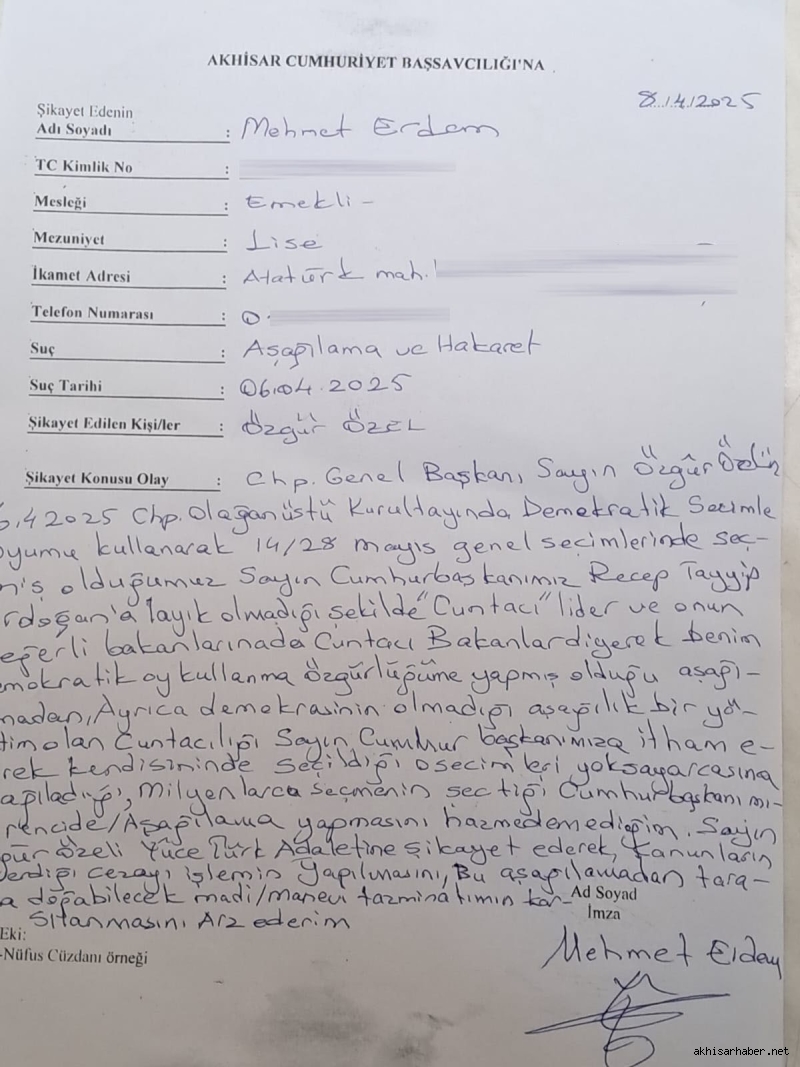 AKHİSAR CUMHURİYET BAŞSAVCILIĞI'NA
8.../4./2025
Şikayet Edenin
Adı Soyadı : Mehmet Erdem
TC Kimlik No :
Mesleği : Emekli -
Mezuniyet : Lise
İkamet Adresi : Atatürk mah.
Telefon Numarası : 0.
Suç : Aşağılama ve Hakaret
Suç Tarihi : 06.04.2025
Şikayet Edilen Kişi/ler : Özgür ÖZEL
Şikayet Konusu Olay : Chp. Genel Başkanı, Sayın Özgür Özelin
6.4 2025 Chp. Olağanüstü Kurultayında Demokratik Secimle
oyumu kullanarak 14/28 mayıs genel seçimlerinde seç-
miş olduğumuz Sayın Cumhurbaşkanımız Recep Tayyip
rdoğan'a layık olmadığı şekilde "Cuntacı" lider ve onun
eğerli bakanlarınada Cuntacı Bakanlar diyerek benim
mokratik oy kullanma Özgürlüğüme yapmış olduğu aşağı-
madan, Ayrıca demokrasinin olmadığı aşağılık bir yö-
tim olan Cuntacılığı Sayın Cumhur başkanımıza itham e-
rek kendisininde seçildiği o secimleri yoksayarcasına
aşağıladığı, Milyonlarca seçmenin seçtiği Cumhurbaşkanımı-
rencide/Aşağılama yapmasını hazmedemediğim. Sayın
gür özeli Yüce Türk Adaletine şikayet ederek, Kanunların
erdiği cezayı işlemin yapılmasını, Bu aşağılamadan tara-
a doğabilecek madi/manevi tazminatımın kar-
şılanmasını Arz ederim
Ad Soyad
İmza
Eki:
-Nüfus Cüzdanı örneği
Mehmet Erdem
akhisarhaber.net